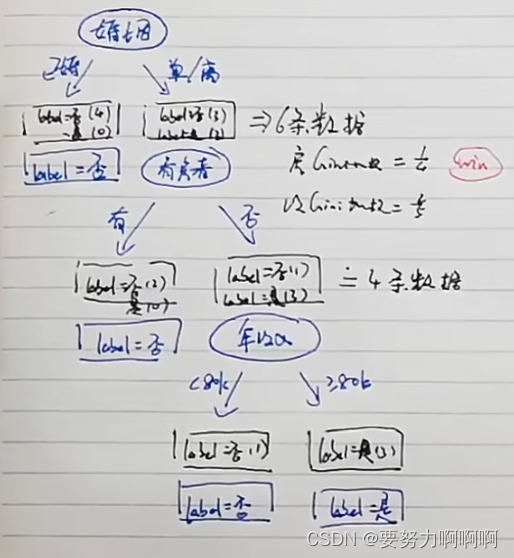 婚姻
已婚 单/离
label=否(4) label=否(3)
是(0) label=是(3) ⇒6条数据
label=否 有房者 房Gini =
min
Gini =
有 否
label=否(2) label=否(1)
是(0) label=是(3) 4条数据
label=否 年收入
<80k ≥80k
label=否(1) label=是(3)
label=否 label=是
CSDN @要努力啊啊啊